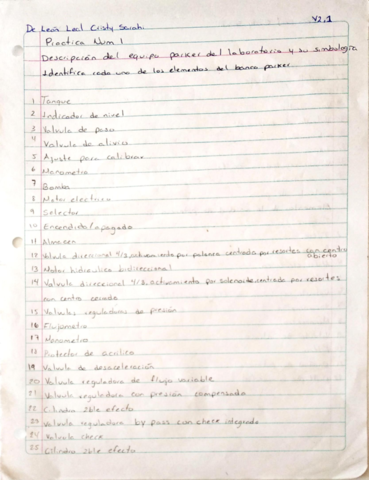 De León Leal Cristy Sarahi V2.1
Practica Num 1
Descripción del equipo parker del laboratorio y su simbologia
Identifica cada uno de los elementos del banco parker.
1 Tanque
2 Indicador de nivel
3 Valvula de paso
4 Valvula de alivio
5 Ajuste para calibrar
6 Manometro
7 Bomba
8 Motor electrico
9 Selector
10 Encendido/apagado
11 Almacen
12 Valvula direccional 4/3, activamiento por palanca centrada por resortes con centro
abierto
13 Motor hidraulico bidireccional
14 Valvula direccional 4/3, activamiento por solenoide, centrado por resortes
con centro cerrado
15 Valvulas reguladoras de presión
16 Flujometro
17 Manometro
18 Protector de acrilico
19 Valvula de desaceleración
20 Valvula reguladora de flujo variable
21 Valvula reguladora con presión compensada
22 Cilindro dble efecto
23 Valvula reguladora by pass con check integrado
24 Valvula check
25 Cilindro dble efecto